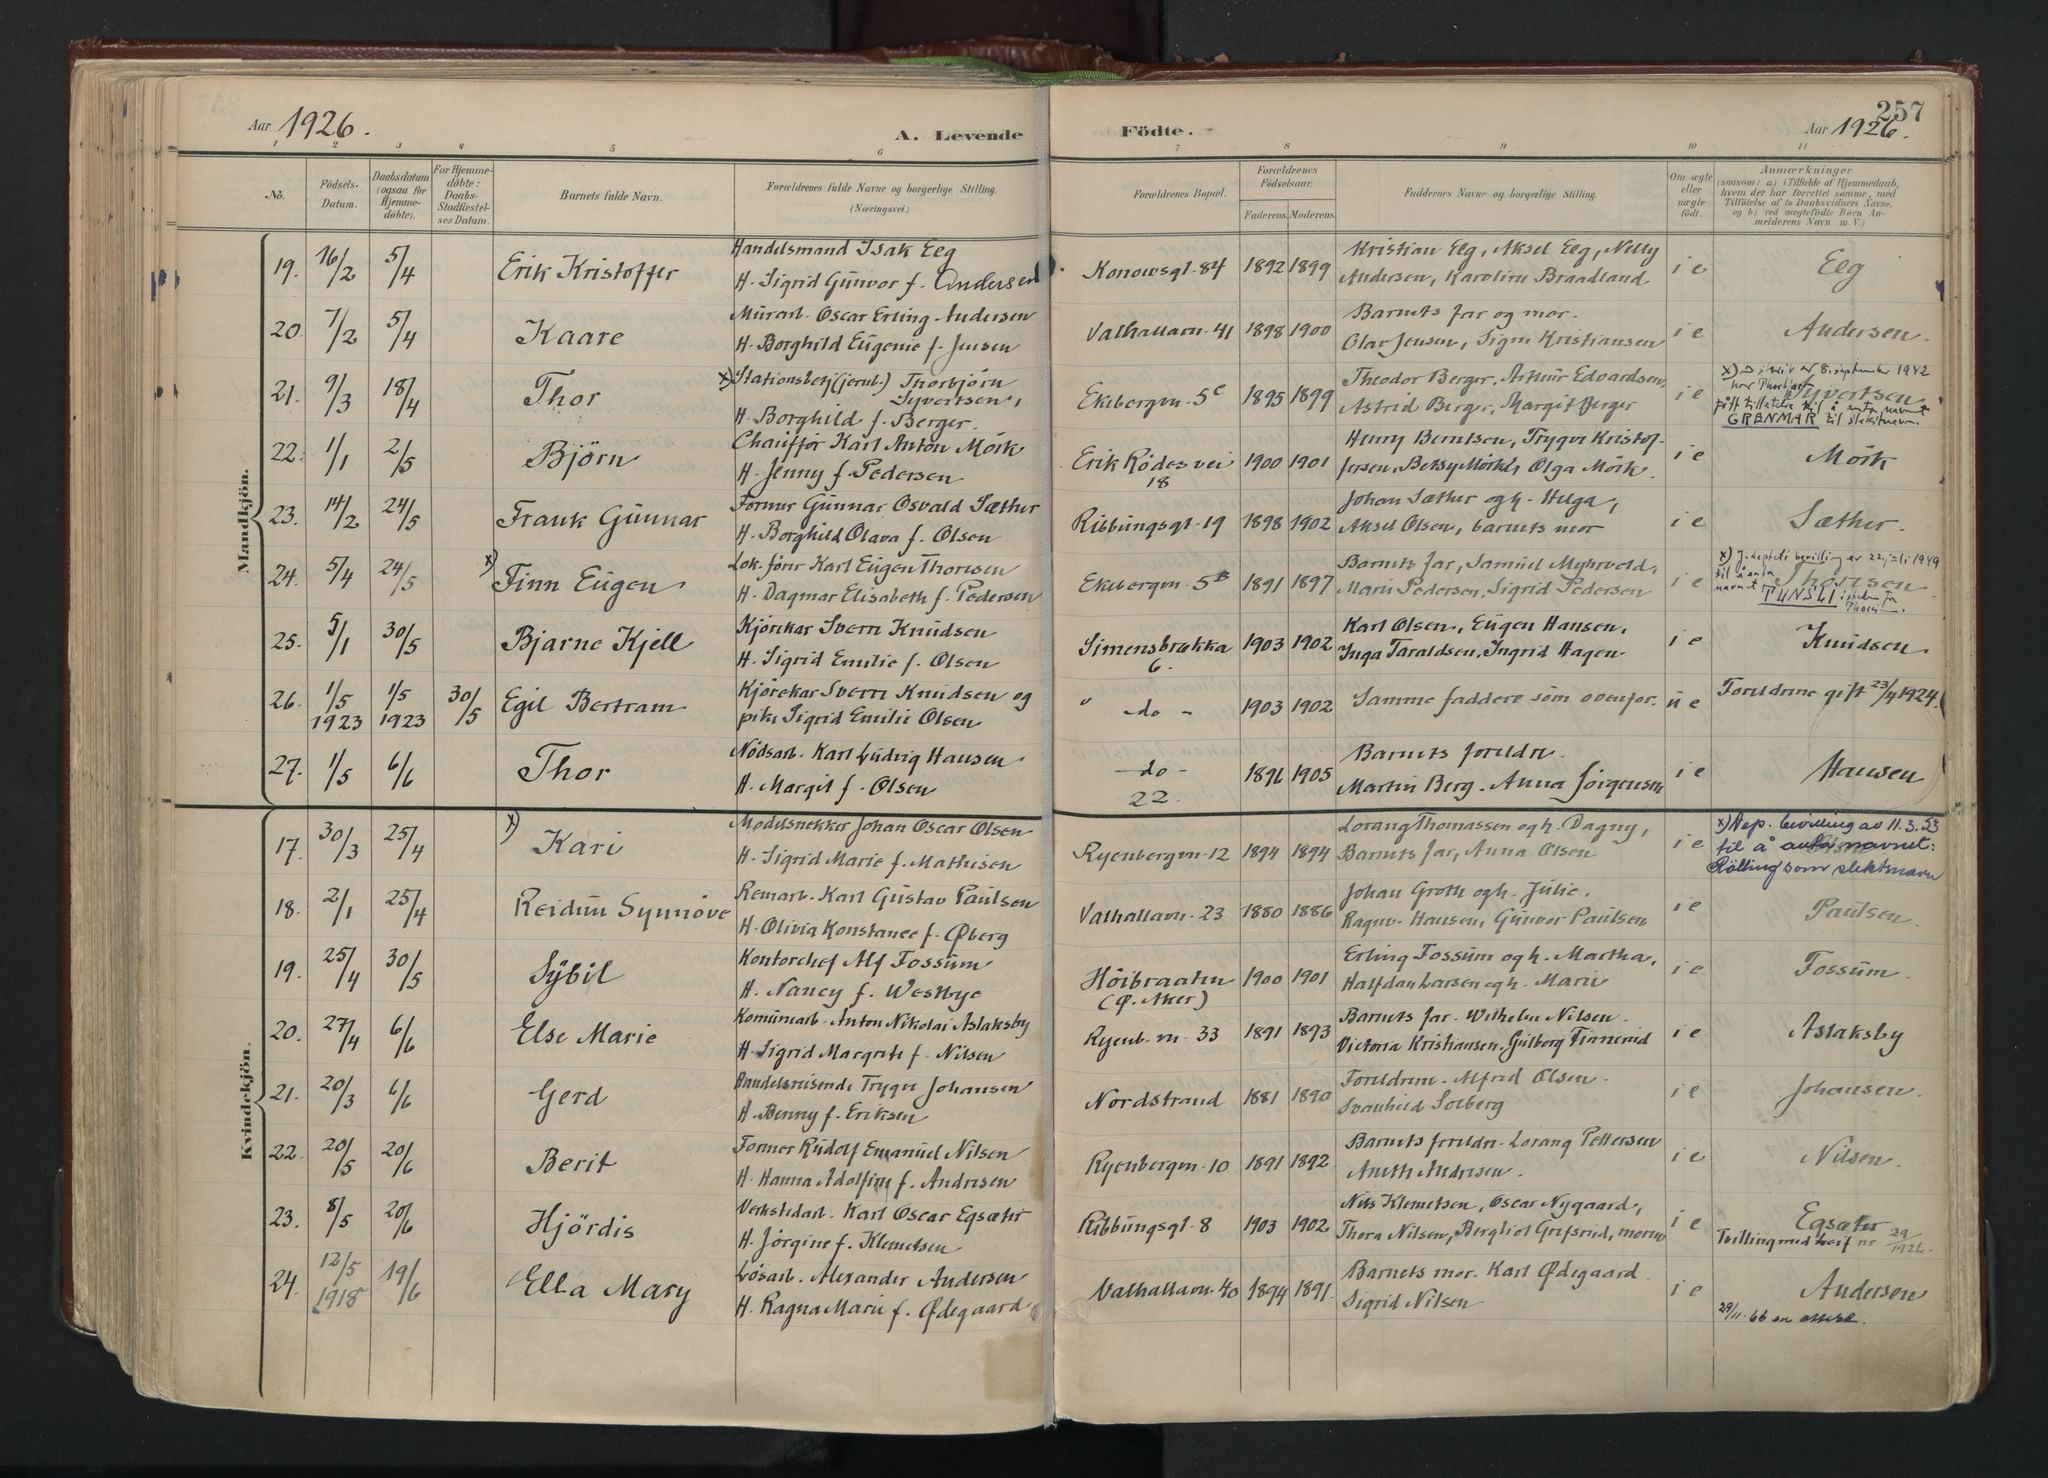 Aar 1926.
A. Levende
Födte.
257
Aar 1926.
1 2 3 4 5 6 7 8 9 10 11
No.
Födsels-Datum.
Daabsdatum (ogsaa for Hjemmedöbte).
For Hjemmedöbte: Daabs-Stadfæstelses Datum.
Barnets fulde Navn.
Forældrenes fulde Navne og borgerlige Stilling.
(Næringsvei.)
Forældrenes Bopæl.
Forældrenes Födselsaar.
Faderens. Moderens.
Faddernes Navne og borgerlige Stilling.
Om ægte eller uægte födt.
Anmærkninger
(saasom: a.) i Tilfælde af Hjemmedaab, hvem der har forrettet samme, med Tilföielse af to Daabsvidners Navne, og b.) ved uægtefödte Börn Anmelderens Navn m. V.)
Mandkjön.
19. 16/2 5/4 Erik Kristoffer Handelsmand Isak Eeg Konowsgt. 84 1892 1899 Kristian Eeg, Aksel Eeg, Nelly i e Eeg
H. Sigrid Gunvor f. Andersen Andersen, Karoline Braadland
20. 7/2 5/4 Kaare Murarb. Oscar Erling Andersen Valhallavn. 41 1898 1900 Barnets far og mor. i e Andersen.
H. Borghild Eugenie f. Jensen Olav Jensen, Signe Kristiansen
21. 9/3 18/4 Thor x) Stationsbetj (jernb.) Thorbjörn Syvertsen, Ekebergvn. 5c 1895 1899 Theodor Berger, Arthur Edvardsen, i e Syvertsen
H. Borghild f. Berger. Astrid Berger, Margit Berger
x) 8. september 1942 har
til å anta navnet
GRENMAR til slektsnavn.
22. 1/1 2/5 Björn Chaufför Karl Anton Mörk Erik Rödes vei 18 1900 1901 Henry Berntsen, Trygve Kristof- i e Mörk
H. Jenny f. Pedersen fersen, Betsy Mörk, Olga Mörk.
23. 14/2 24/5 Frank Gunnar Former Gunnar Osvald Sæther Ribbungsgt. 19 1898 1902 Johan Sæther og h. Helga, i e Sæther.
H. Borghild Olava f. Olsen Aksel Olsen, barnets mor
24. 5/4 24/5 x) Finn Eugen Lok. förer Karl Eugen Thoresen Ekebergvn. 5B 1891 1897 Barnets far, Samuel Myhrvold, i e Thoresen
H. Dagmar Elisabeth f. Pedersen Marie Pedersen, Sigrid Pedersen
x) J. deptets bevilling av 22 juli 1949
til å anta
navnet TUNSLI istedenfor
25. 5/1 30/5 Bjarne Kjell Kjörekar Sverre Knudsen Simensbrækka 6. 1903 1902 Karl Olsen, Eugen Hansen, i e Knudsen
H. Sigrid Emilie f. Olsen Inga Taraldsen, Ingrid Hagen
26. 1/5 1923 1/5 1923 30/5 Egil Bertram Kjörekar Sverre Knudsen og " do - 1903 1902 Samme faddere som ovenfor. u e Foreldrene gift 23/4 1924.
pike Sigrid Emilie Olsen
27. 1/5 6/6 Thor Nödsarb. Karl Ludvig Hansen - do - 22. 1896 1905 Barnets foreldre. i e Hansen
H. Margit f. Olsen Martin Berg. Anna Jörgensen
Kvindekjön.
17. 30/3 25/4 x) Kari Modelsnekker Johan Oscar Olsen Ryenbergvn. 12 1894 1894 Lorang Thomassen og h. Dagny, i e
H. Sigrid Marie f. Mathisen Barnets far, Anna Olsen
x) Dep. bevilling av 11.3.53
til å anta navnet:
Rölling som slektsnavn
18. 2/1 25/4 Reidun Synnöve Remarb. Karl Gustav Paulsen Valhallavn. 23 1880 1886 Johan Groth og h. Julie. i e Paulsen.
H. Olivia Konstance f. Øberg Ragnv. Hansen, Gunvor Paulsen
19. 25/4 30/5 Sybil Kontorchef Alf Fossum Höibraaten (Ø. Aker) 1900 1901 Erling Fossum og h. Martha, i e Fossum.
H. Nancy f. Westbye Halfdan Larsen og h. Marie
20. 27/4 6/6 Else Marie Komunearb. Anton Nikolai Aslaksby Ryenb. vn. 33 1891 1893 Barnets far. Wilhelm Nilsen. i e Aslaksby
H. Sigrid Margrete f. Nilsen Victoria Kristiansen, Gulborg Finnerud
21. 20/3 6/6 Gerd Handelsreisende Trygve Johansen Nordstrand 1881 1890 Foreldrene. Alfred Olsen. i e Johansen.
H. Benny f. Eriksen Svanhild Solberg
22. 20/5 20/6 Berit Former Rudolf Emanuel Nilsen Ryenbergvn. 10 1891 1892. Barnets foreldre. Lorang Pettersen i e Nilsen.
H. Hanna Adolfine f. Andresen Aneth Andresen.
23. 8/5 20/6 Hjördis Verkstedarb. Karl Oscar Egsæter Ribbungsgt. 8 1903 1902. Nils Klemetsen, Oscar Nygaard, i e Egsæter
H. Jörgine f. Klemetsen Thora Nilsen, Bergliot Grefsrud, moren Tvilling med Leif nr 29/1926.
24. 12/5 1918 19/6 Ella Mary Lösarb. Alexander Andersen Valhallavn. 40 1894 1891. Barnets mor. Karl Ødegaard. i e Andersen
H. Ragna Marie f. Ødegaard Sigrid Nilsen 29/11.66 en attest.